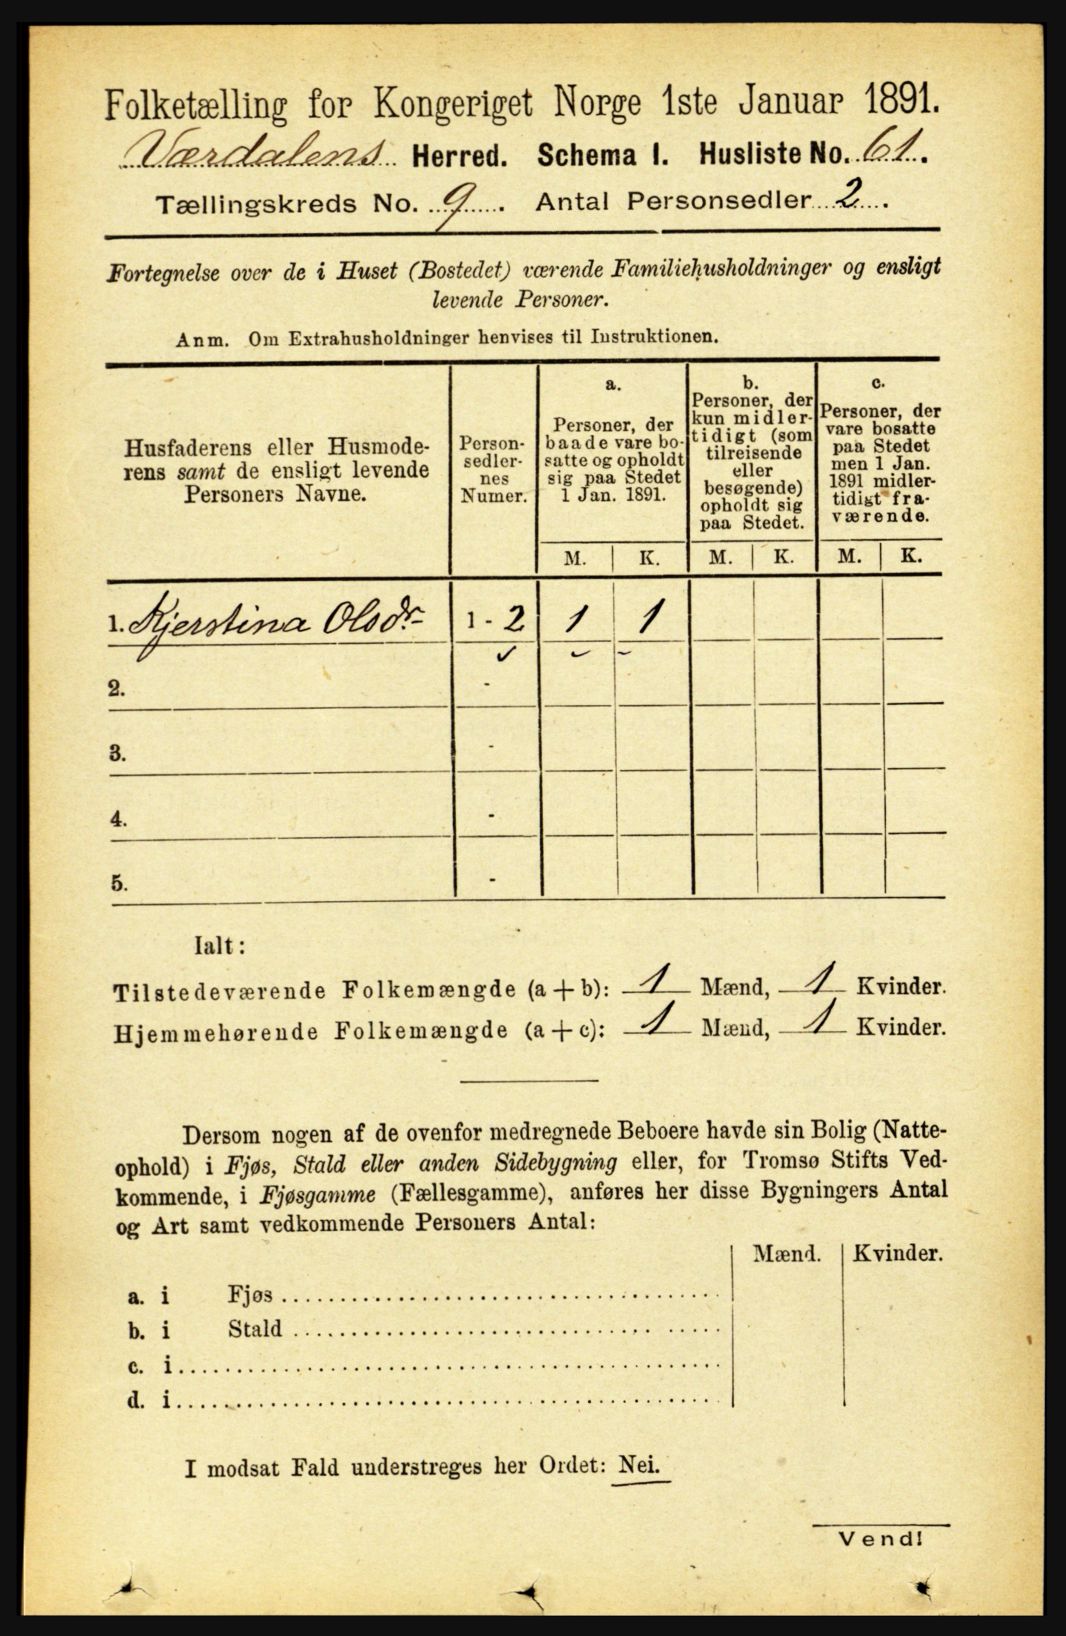 Folketælling for Kongeriget Norge 1ste Januar 1891.
Værdalens Herred. Schema I. Husliste No. 61.
Tællingskreds No. 9. Antal Personsedler 2.
Fortegnelse over de i Huset (Bostedet) værende Familiehusholdninger og ensligt
levende Personer.
Anm. Om Extrahusholdninger henvises til Instruktionen.
Husfaderens eller Husmode-
rens samt de ensligt levende
Personers Navne.
Person-
sedler-
nes
Numer.
a.
Personer, der
baade vare bo-
satte og opholdt
sig paa Stedet
1 Jan. 1891.
b.
Personer, der
kun midler-
tidigt (som
tilreisende
eller
besøgende)
opholdt sig
paa Stedet.
c.
Personer, der
vare bosatte
paa Stedet
men 1 Jan.
1891 midler-
tidigt fra-
værende.
M. K. M. K. M. K.
1. Kjerstina Olsdr. 1 - 2 1 1
2. -
3. -
4. -
5. -
Ialt:
Tilstedeværende Folkemængde (a + b): 1 Mænd, 1 Kvinder.
Hjemmehørende Folkemængde (a + c): 1 Mænd, 1 Kvinder.
Dersom nogen af de ovenfor medregnede Beboere havde sin Bolig (Natte-
ophold) i Fjøs, Stald eller anden Sidebygning eller, for Tromsø Stifts Ved-
kommende, i Fjøsgamme (Fællesgamme), anføres her disse Bygningers Antal
og Art samt vedkommende Personers Antal:
Mænd. Kvinder.
a. i Fjøs
b. i Stald
c. i
d. i
I modsat Fald understreges her Ordet: Nei.
Vend!